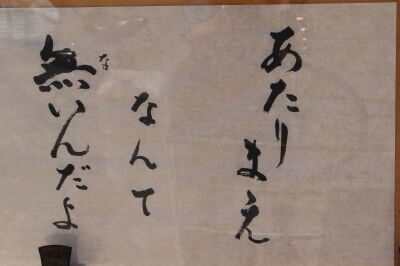 あたりまえ
なんて
無いんだよ
な